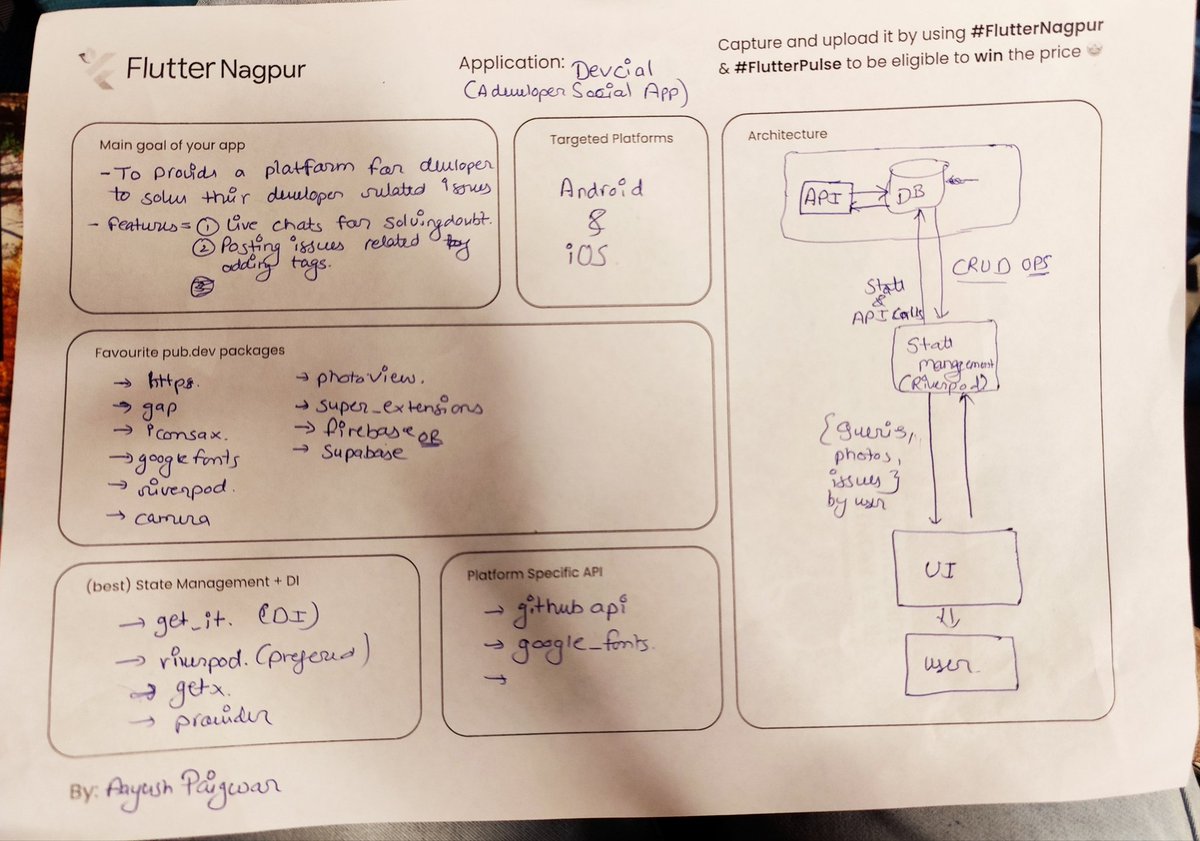 Flutter Nagpur
Application: Devcial
(A developer Social App)
Capture and upload it by using #FlutterNagpur
& #FlutterPulse to be eligible to win the price
Main goal of your app
- To provide a platform for developer
to solve their developer related issues
- features = ① Live chats for solving doubt.
② Posting issues related by
adding tags.
Targeted Platforms
Android
&
iOS
Favourite pub.dev packages
→ https.
→ gap
→ iconsax.
→ google fonts
→ riverpod.
→ camera
→ photoview.
→ super_extensions
→ firebase OR
→ Supabase
(best) State Management + DI
→ get_it. (DI)
→ riverpod. (prefered)
→ getx.
→ provider
Platform Specific API
→ github api
→ google_fonts.
→
Architecture
API
DB
CRUD OPS
State
&
API Calls
State
mangement
(Riverpod)
{queris,
photos,
issues}
by user
UI
user.
By: Aayush Paigwar